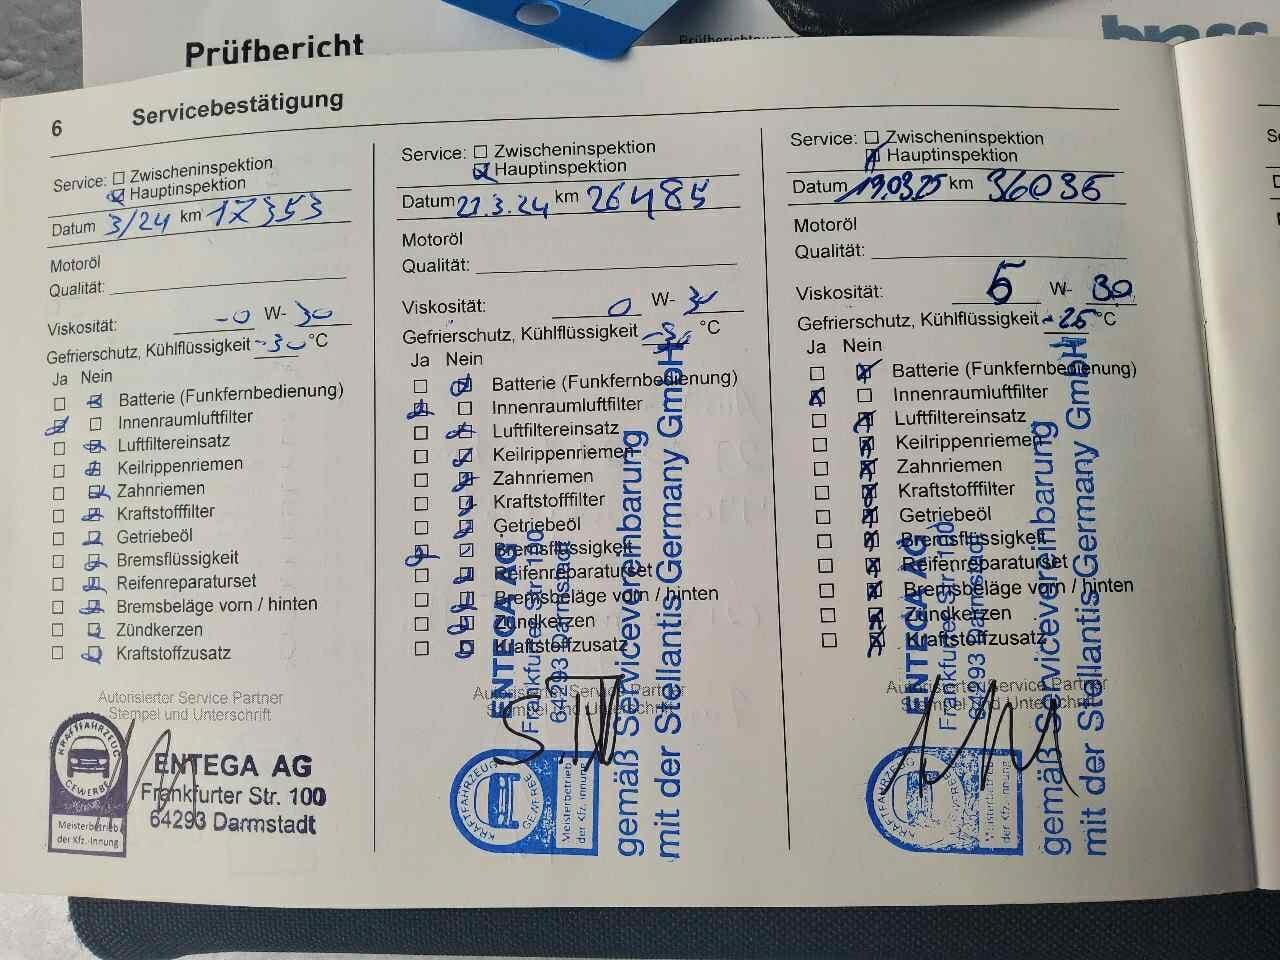 Prüfbericht
6 Servicebestätigung
Service: Zwischeninspektion
Hauptinspektion
Datum 3/24 km 17353
Motoröl
Qualität:
Viskosität: -0 W- 30
Gefrierschutz, Kühlflüssigkeit -30 °C
Ja Nein
Batterie (Funkfernbedienung)
Innenraumluftfilter
Luftfiltereinsatz
Keilrippenriemen
Zahnriemen
Kraftstofffilter
Getriebeöl
Bremsflüssigkeit
Reifenreparaturset
Bremsbeläge vorn / hinten
Zündkerzen
Kraftstoffzusatz
Autorisierter Service Partner
Stempel und Unterschrift
KRAFTFAHRZEUG
GEWERBE
Meisterbetrieb
der Kfz.-Innung
ENTEGA AG
Frankfurter Str. 100
64293 Darmstadt
Service: Zwischeninspektion
Hauptinspektion
Datum 21.3.24 km 26485
Motoröl
Qualität:
Viskosität: 0 W- 30
Gefrierschutz, Kühlflüssigkeit -30 °C
Ja Nein
Batterie (Funkfernbedienung)
Innenraumluftfilter
Luftfiltereinsatz
Keilrippenriemen
Zahnriemen
Kraftstofffilter
Getriebeöl
Bremsflüssigkeit
Reifenreparaturset
Bremsbeläge vorn / hinten
Zündkerzen
Kraftstoffzusatz
Autorisierter Service Partner
Stempel und Unterschrift
KRAFTFAHRZEUG
GEWERBE
Meisterbetrieb
der Kfz.-Innung
ENTEGA AG
Frankfurter Str. 100
64293 Darmstadt
gemäß Servicevereinbarung
mit der Stellantis Germany GmbH
Service: Zwischeninspektion
Hauptinspektion
Datum 19.03.25 km 36036
Motoröl
Qualität:
Viskosität: 5 W- 30
Gefrierschutz, Kühlflüssigkeit -25 °C
Ja Nein
Batterie (Funkfernbedienung)
Innenraumluftfilter
Luftfiltereinsatz
Keilrippenriemen
Zahnriemen
Kraftstofffilter
Getriebeöl
Bremsflüssigkeit
Reifenreparaturset
Bremsbeläge vorn / hinten
Zündkerzen
Kraftstoffzusatz
Autorisierter Service Partner
Stempel und Unterschrift
KRAFTFAHRZEUG
GEWERBE
Meisterbetrieb
der Kfz.-Innung
ENTEGA AG
Frankfurter Str. 100
64293 Darmstadt
gemäß Servicevereinbarung
mit der Stellantis Germany GmbH